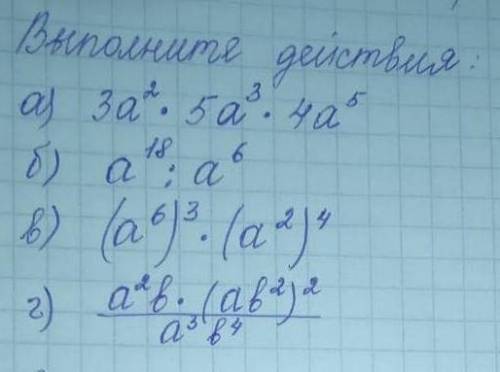 Выполните действия:
а) 3a² · 5a³ · 4a⁵
б) a¹⁸ : a⁶
в) (a⁶)³ · (a²)⁴
г) a²b · (ab²)²
a³b⁴